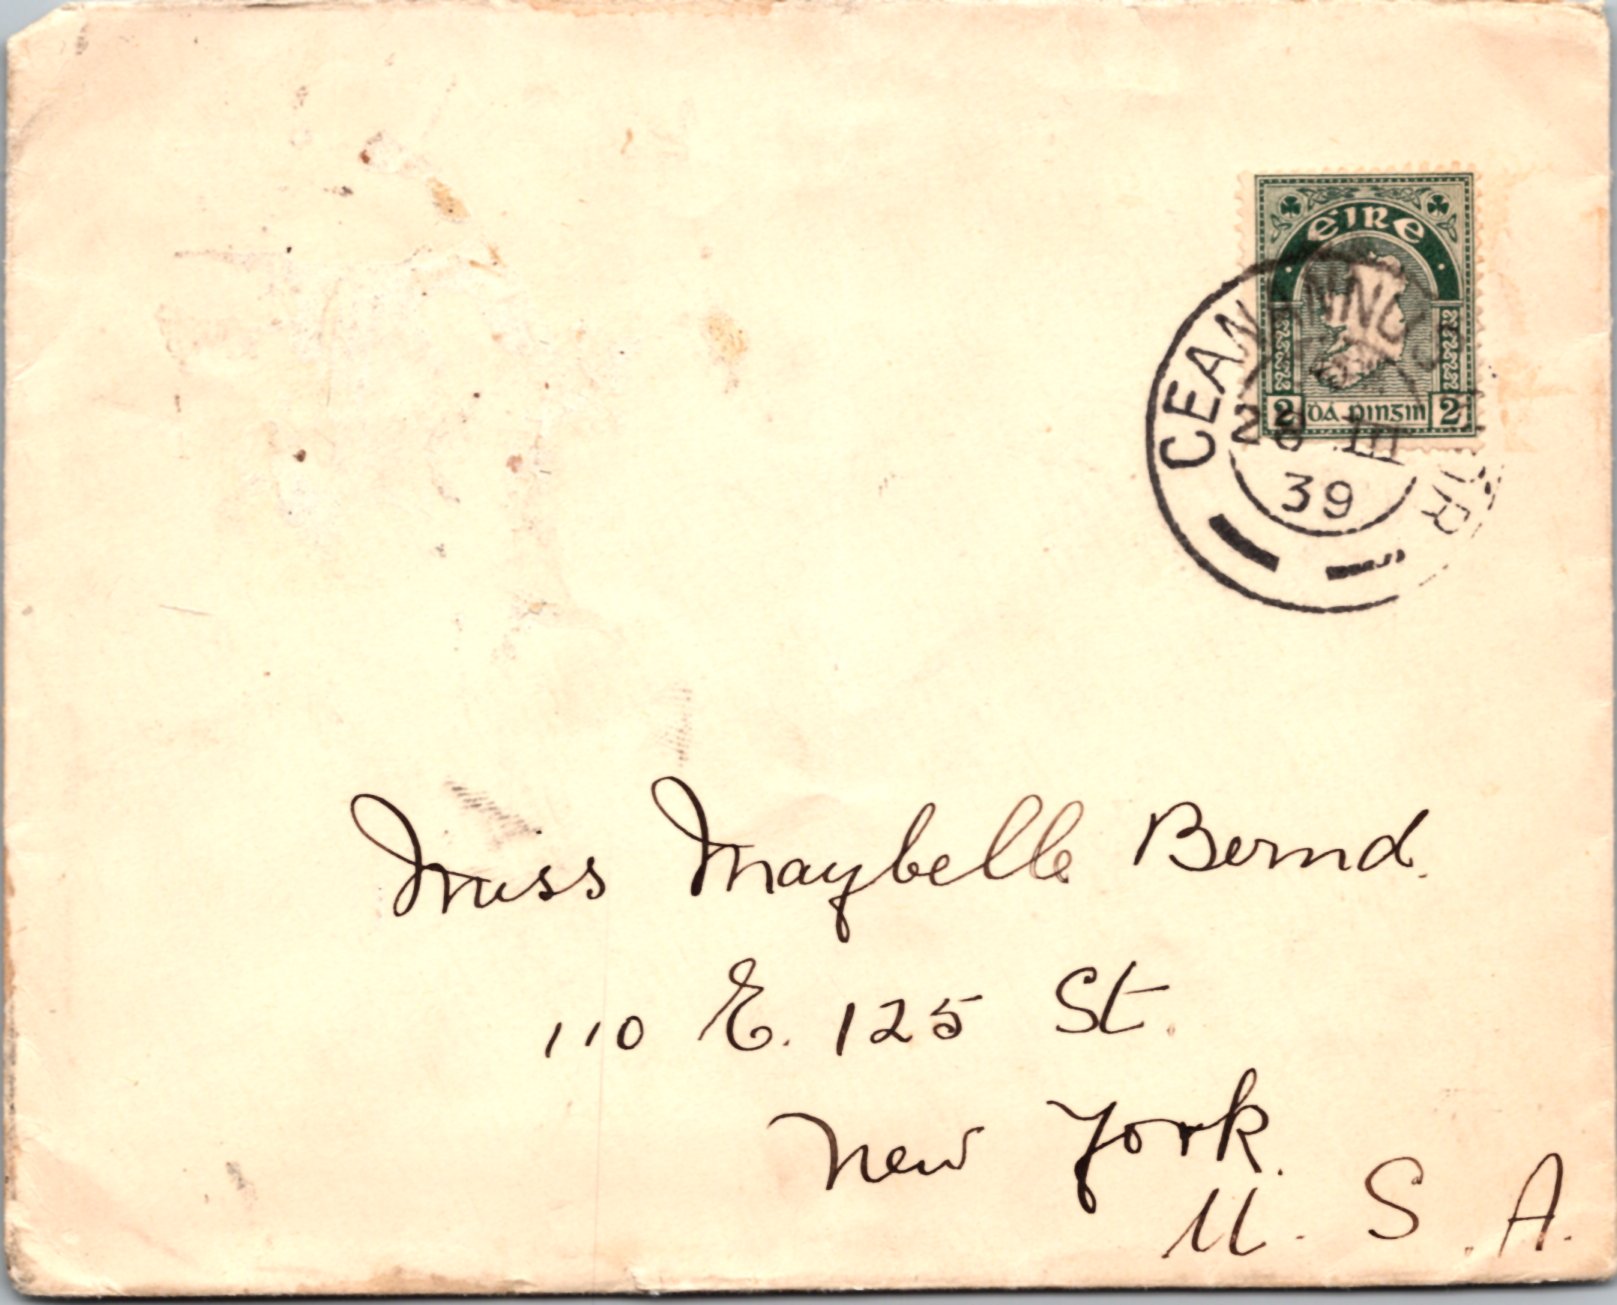 éire
2 dá pingin 2
CEANANNUS MÓR
28 III
39
Miss Maybelle Bernd.
110 E. 125 St.
New York.
U. S. A.